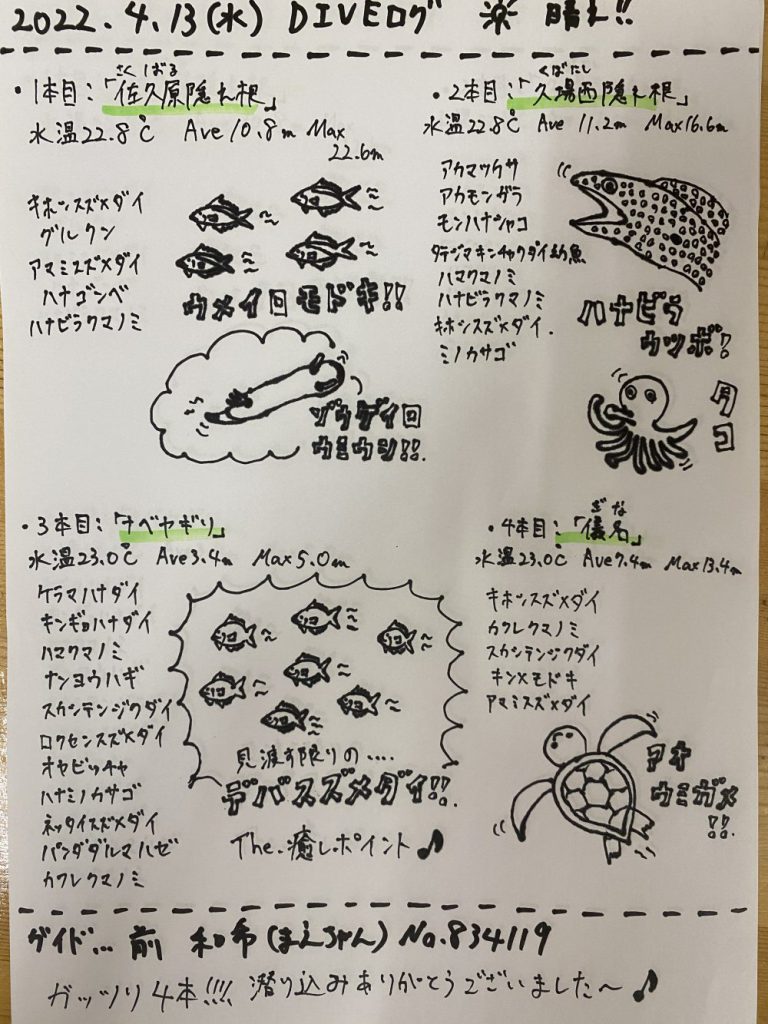 2022.4.13(水) DIVEログ 晴れ!!
さくばる
・1本目:「佐久原隠れ根」
水温22.8℃ Ave 10.8m Max
22.6m
キホシスズメダイ
グルクン
アマミスズメダイ
ハナゴンベ
ハナビラクマノミ
ウメイロモドキ!!
ゾウゲイロ
ウミウシ!!
くばにし
・2本目:「久場西隠れ根」
水温22.8℃ Ave 11.2m Max16.6m
アカマツカサ
アカモンガラ
モンハナシャコ
タテジマキンチャクダイ幼魚
ハマクマノミ
ハナビラクマノミ
キホシスズメダイ.
ミノカサゴ
ハナビラ
ウツボ!
タコ
・3本目:「ナベヤギリ」
水温23.0℃ Ave3.4m Max5.0m
ケラマハナダイ
キンギョハナダイ
ハマクマノミ
ナンヨウハギ
スカシテンジクダイ
ロクセンスズメダイ
オヤビッチャ
ハナミノカサゴ
ネッタイスズメダイ
パンダダルマハゼ
カクレクマノミ
見渡す限りの....
デバスズメダイ!!.
The.癒しポイント♪
ぎな
・4本目:「儀名」
水温23.0℃ Ave7.4m Max13.4m
キホシスズメダイ
カクレクマノミ
スカシテンジクダイ
キンメモドキ
アマミスズメダイ
アオ
ウミガメ
!!.
ガイド... 前 和希(まえちゃん) No.834119
ガッツリ4本!!!! 潜り込みありがとうございました〜♪